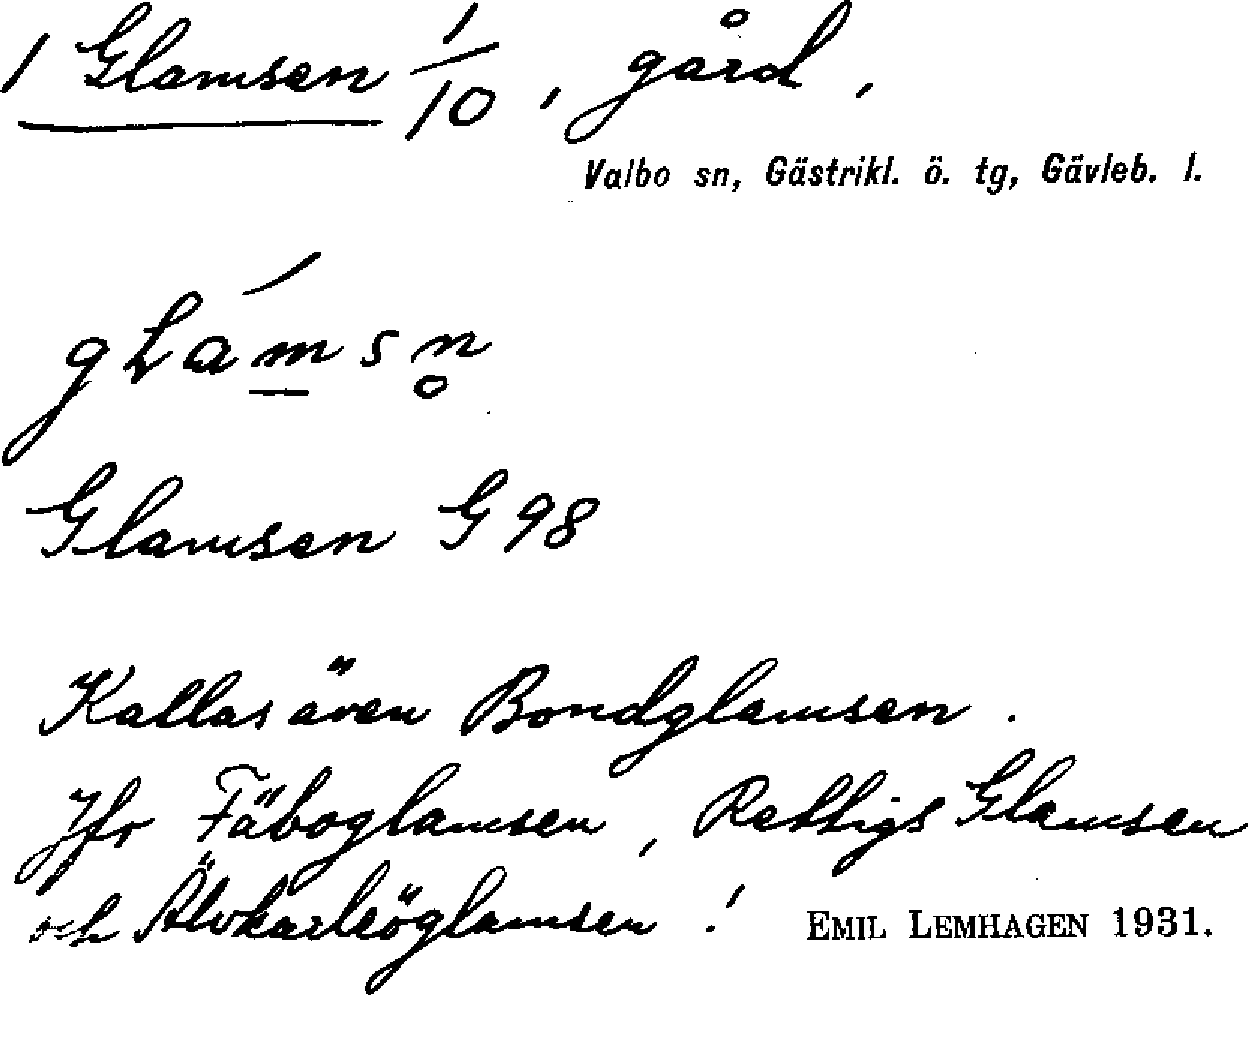 1 Glamsen 1/10, gård,
Valbo sn, Gästrikl. ö. tg, Gävleb. l.
gLám̲sn̥
Glamsen G 98
Kallas även Bondglamsen.
Jfr Fäboglamsen, Rettigs Glamsen
och Älvkarleöglamsen!
EMIL LEMHAGEN 1931.